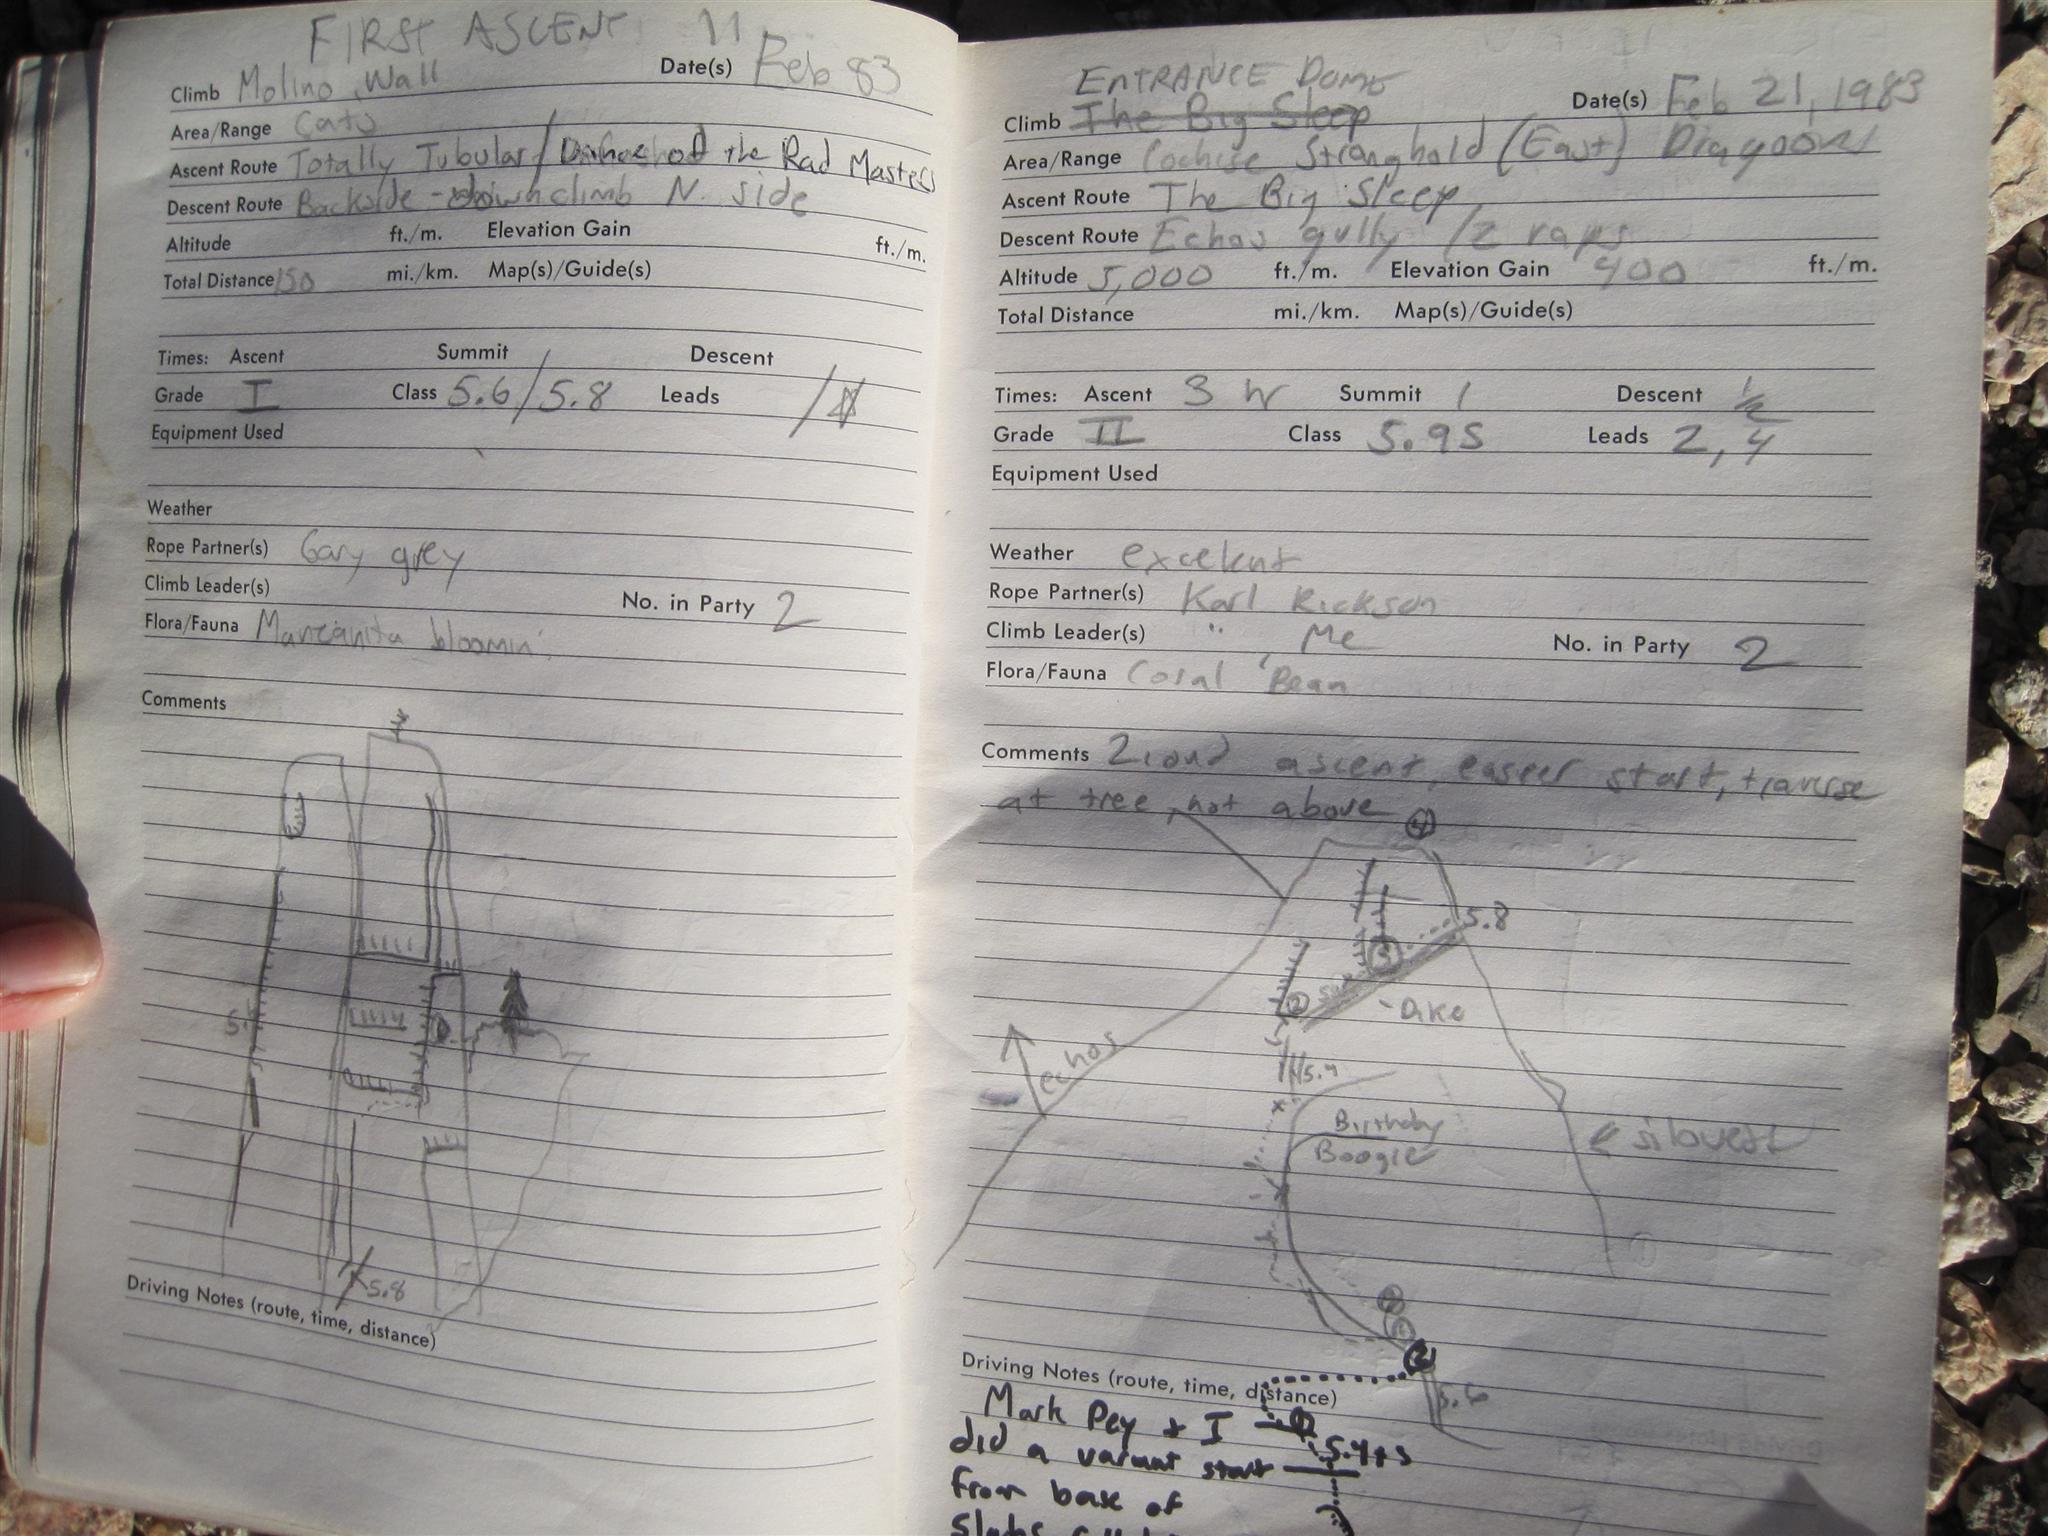 FIRST ASCENT 11
Climb Molino Wall Date(s) Feb 83
Area/Range Cats
Ascent Route Totally Tubular / Dance of the Rad Masters
Descent Route Backside - downclimb N. side
Altitude ft./m. Elevation Gain ft./m.
Total Distance 150 mi./km. Map(s)/Guide(s)
Times: Ascent Summit Descent
Grade I Class 5.6/5.8 Leads /
Equipment Used
Weather
Rope Partner(s) Gary grey
Climb Leader(s) No. in Party 2
Flora/Fauna Manzanita bloomin'
Comments
5.8
Driving Notes (route, time, distance)
ENTRANCE DOME
Climb The Big Sleep Date(s) Feb 21, 1983
Area/Range Cochise Stronghold (East) Dragoons
Ascent Route The Big Sleep
Descent Route Echos gully / 2 raps
Altitude 5,000 ft./m. Elevation Gain 400 ft./m.
Total Distance mi./km. Map(s)/Guide(s)
Times: Ascent 3 hr Summit 1 Descent 1/2
Grade II Class 5.9S Leads 2, 4
Equipment Used
Weather excelent
Rope Partner(s) Karl Rickson
Climb Leader(s) " , Me No. in Party 2
Flora/Fauna Coral Bean
Comments 2ond ascent, easier start, traverse
at tree, not above
4
5.8
3
2
- Dike
echos
5.9
Birthday
Boogie
2
5.6
Driving Notes (route, time, distance)
Mark Pey + I
did a variant start
5.9+s
from base of
Slabs